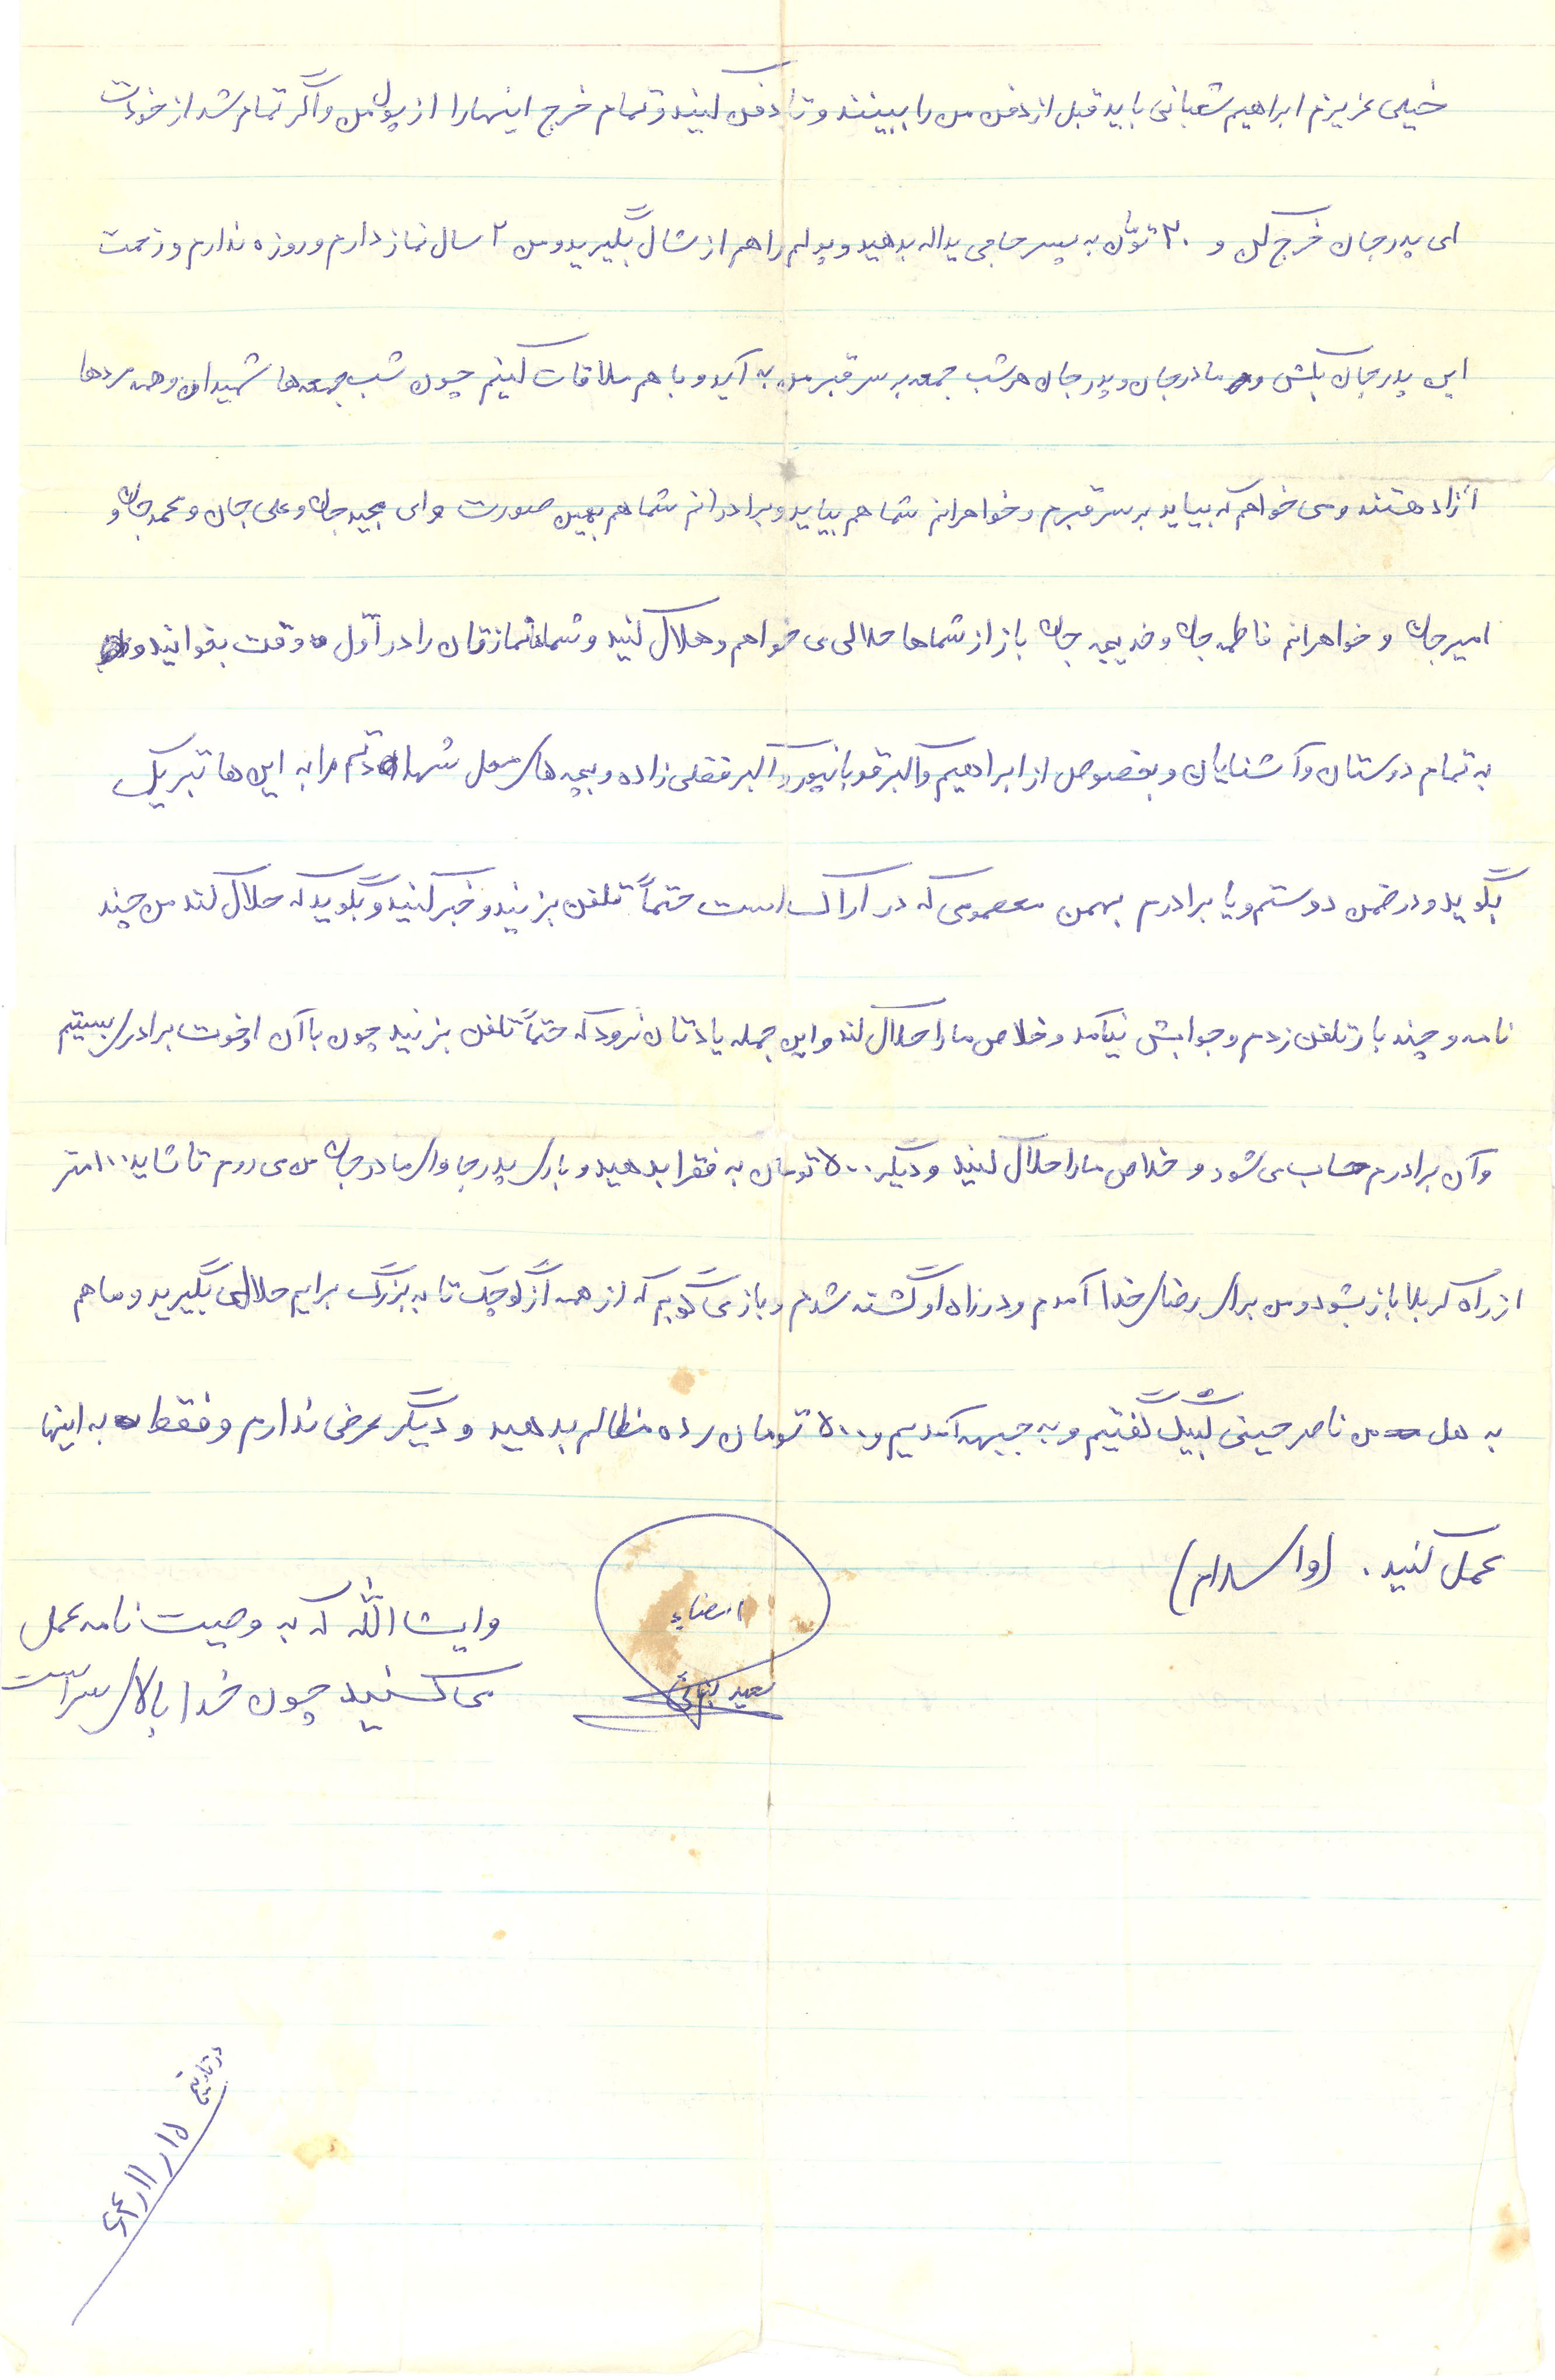 خیلی عزیزم ابراهیم شعبانی باید قبل از دفن من را ببینند و تا دفن کنند و تمام خرج اینها را از پول من و اگر تمام شد از خودت
ای پدر جان خرج کن و ۳۰ تومان به پسر حاجی یداله بدهید و پولم را هم از شال بگیرید و من ۲ سال نماز دارم و روزه ندارم و زحمت
این پدر جان بکش و مادر جان و پدر جان هر شب جمعه بر سر قبر من به آید و با هم ملاقات کنیم چون شب جمعه ها شهیدان و همه مردها
آزاد هستند و می خواهم که بیاید بر سر قبرم و خواهرانم شما هم بیاید و برادرانم شما هم بهمین صورت و ای مجید جان و علی جان و محمد جان و
امیر جان و خواهرانم فاطمه جان و خدیجه جان باز از شماها حلالی می خواهم و هلال کنید و شماها نمازتان را در اول وقت بخوانید و
به تمام دوستان و آشنایان و بخصوص از ابراهیم و اکبر قوبانپور و اکبر فضلی زاده و بچه های محل شهادتم را به این ها تبریک
بگوید و در ضمن دوستم و یا برادرم بهمن معصومی که در اراک است حتماً تلفن بزنید و خبر کنید و بگوید که حلال کند من چند
نامه و چند بار تلفن زدم و جوابش نیآمد و خلاص ما را حلال کند و این جمله یادتان نرود که حتماً تلفن بزنید چون با آن اخوت برادری بستیم
و آن برادرم حساب می شود و خلاص ما را حلال کنید و دیگر ۵۰۰ تومان به فقرا بدهید و بار پدر جا وای مادر جان من می روم تا شاید ۱۰۰ متر
از راه کربلا باز بشود و من برای رضای خدا آمدم و در راه او گشته شدم و باز می گویم که از همه از کوچک تا به بزرگ برایم حلالی بگیرید و ما هم
به هل من ناصر حسینی لبیک گفتیم و به جبهه آمدیم و ۵۰۰ تومان رده مظالم بدهید و دیگر عرضی ندارم و فقط به اینها
عمل کنید. (والسلام)
امضاء
سعید
وایشاالله که به وصیت نامه عمل
می کنید چون خدا بالای سر است
در تاریخ ۱۵ ر ۱۱ ر ۶۴